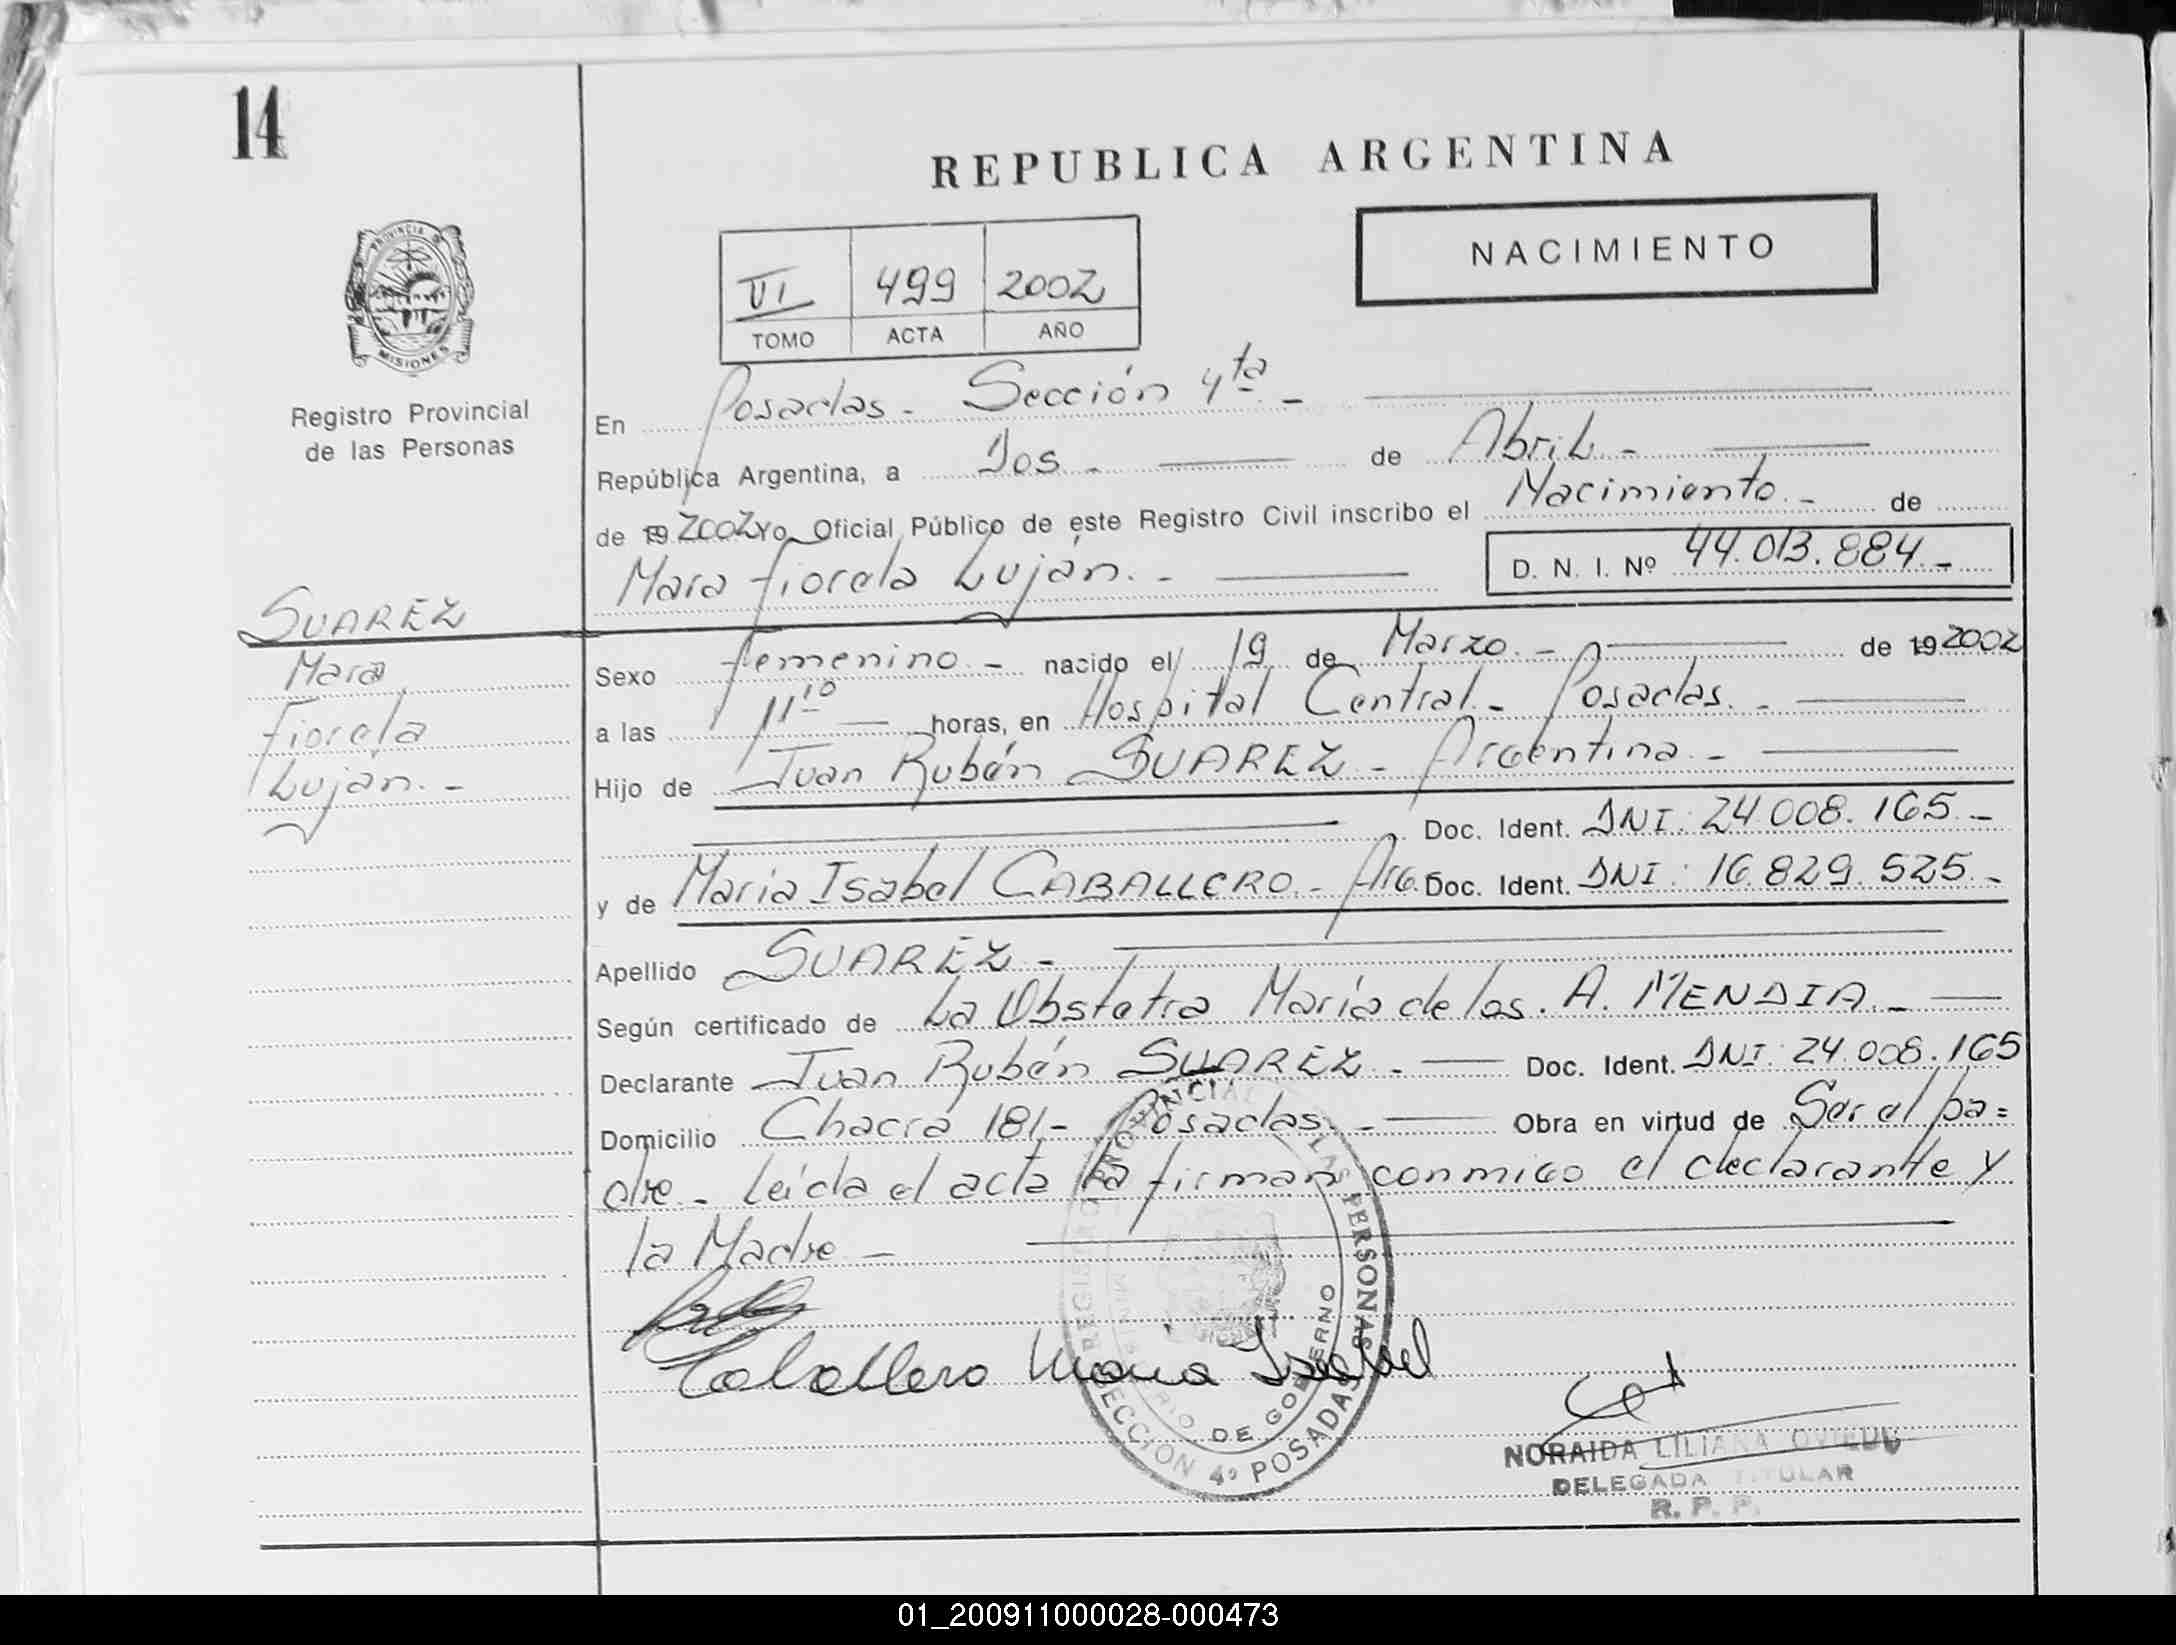 14
REPUBLICA ARGENTINA
NACIMIENTO
VI 499 2002
TOMO ACTA AÑO
PROVINCIA DE
MISIONES
Registro Provincial
de las Personas
En Posadas - Sección 4ta -
República Argentina, a Dos - de Abril -
de 19 2002 Yo Oficial Público de este Registro Civil inscribo el Nacimiento - de
Mara Fiorela Luján. - D. N. I. Nº 44.013.884 -
SUAREZ
Mara
Fiorela
Luján. -
Sexo femenino - nacido el 19 de Marzo. - de 19 2002
a las 11 10 horas, en Hospital Central - Posadas. -
Hijo de Juan Rubén SUAREZ - Argentina -
Doc. Ident. DNI: 24.008.165 -
y de Maria Isabel CABALLERO. - Arg. Doc. Ident. DNI: 16.829.525 -
Apellido SUAREZ -
Según certificado de La Obstetra María de los. A. MENDIA. -
Declarante Juan Rubén SUAREZ - Doc. Ident. DNI: 24.008.165
Domicilio Chacra 181,- Posadas. - Obra en virtud de Ser el pa=
dre - Leída el acta la firman conmigo el declarante y
la Madre -
Caballero Maria Isabel
REGISTRO PROVINCIAL DE LAS PERSONAS
MINISTERIO DE GOBIERNO
SECCION 4º POSADAS
NORAIDA LILIANA OVIEDO
DELEGADA TITULAR
R. P. P.
01_200911000028-000473